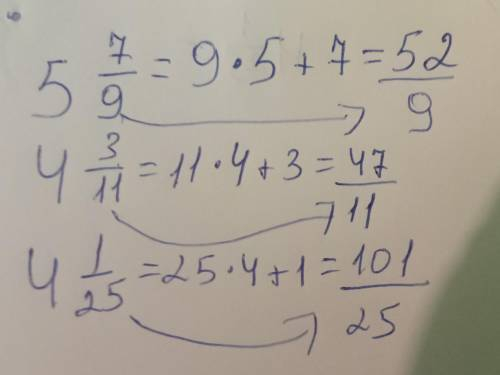 5 7/9 = 9·5+7 = 52/9
4 3/11 = 11·4+3 = 47/11
4 1/25 = 25·4+1 = 101/25